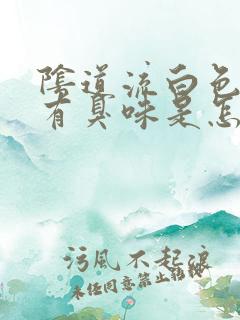 陰道流白色
有臭味是怎
污風不起浪
未任同意禁止轉載